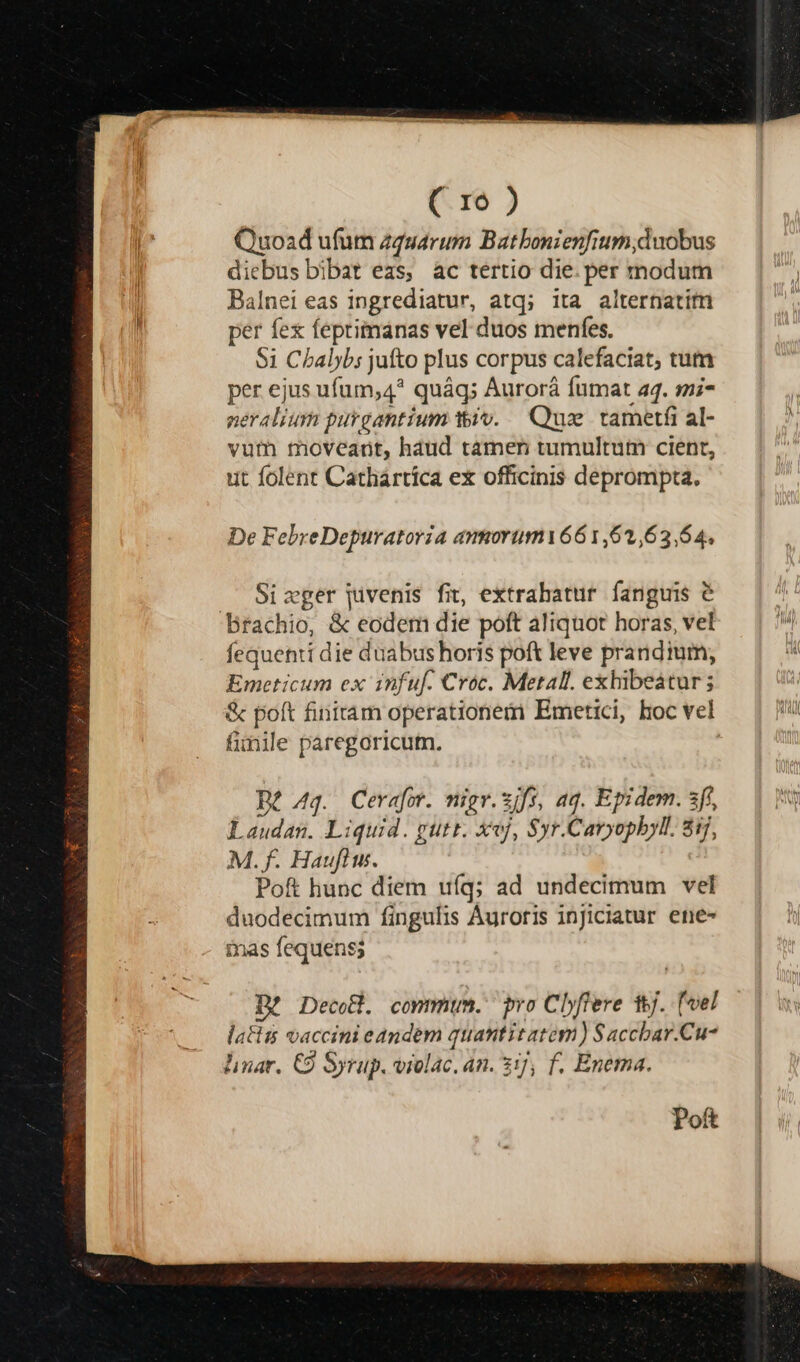 ( 16 )
Quoad uſum aquarum Bathonienſium, duobus
diebus bibat eas, ac tertio die per modum
Balnei eas ingrediatur, atq; ita alternatim
per ſex ſeptimanas vel duos menſes.
Si Chalybs juſto plus corpus calefaciat, tum
per ejus uſum, 4ª quâq; Aurorâ ſumat aq. mi-
neralium purgantium ℔iv. Quæ tametſi al-
vum moveant, haud tamen tumultum cient,
ut ſolent Cathartica ex officinis deprompta.
De Febre Depuratoria annorum 1661, 62, 63, 64.
Si æger juvenis ſit, extrahatur ſanguis è
brachio, & eodem die poſt aliquot horas, vel
ſequenti die duabus horis poſt leve prandium,
Emeticum ex infuſ. Croc. Metall. exhibeatur;
& poſt finitam operationem Emetici, hoc vel
ſimile paregoricum.
℞ Aq. Ceraſor. nigr. ʒjſs, aq. Epidem. ʒſs,
Laudan. Liquid. gutt. xvj, Syr. Caryophyll. ʒij,
M. f. Hauſtus.
Poſt hunc diem uſq; ad undecimum vel
duodecimum ſingulis Auroris injiciatur ene-
mas ſequens;
℞ Decoct. commun. pro Clyſtere ℔j. (vel
lactis vaccini eandem quantitatem) Sacchar. Cu-
linar. & Syrup. violac. an. ʒij, f. Enema.
Poſt